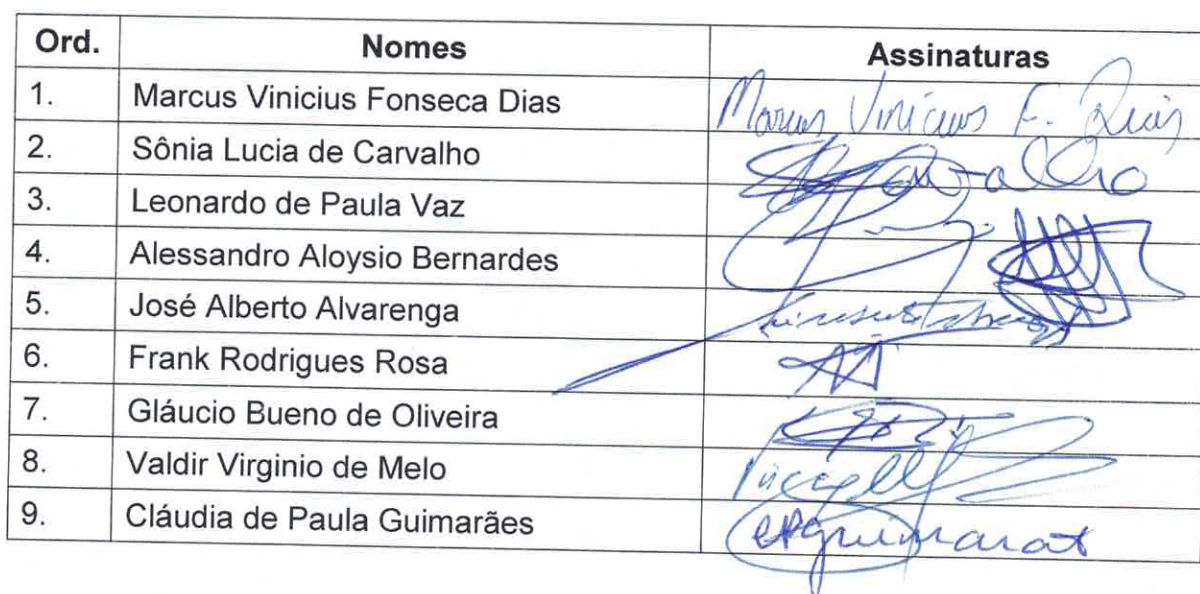 Ord. Nomes Assinaturas
1. Marcus Vinicius Fonseca Dias Marcus Vinicius F. Dias
2. Sônia Lucia de Carvalho Carvalho
3. Leonardo de Paula Vaz
4. Alessandro Aloysio Bernardes
5. José Alberto Alvarenga
6. Frank Rodrigues Rosa
7. Gláucio Bueno de Oliveira
8. Valdir Virginio de Melo
9. Cláudia de Paula Guimarães